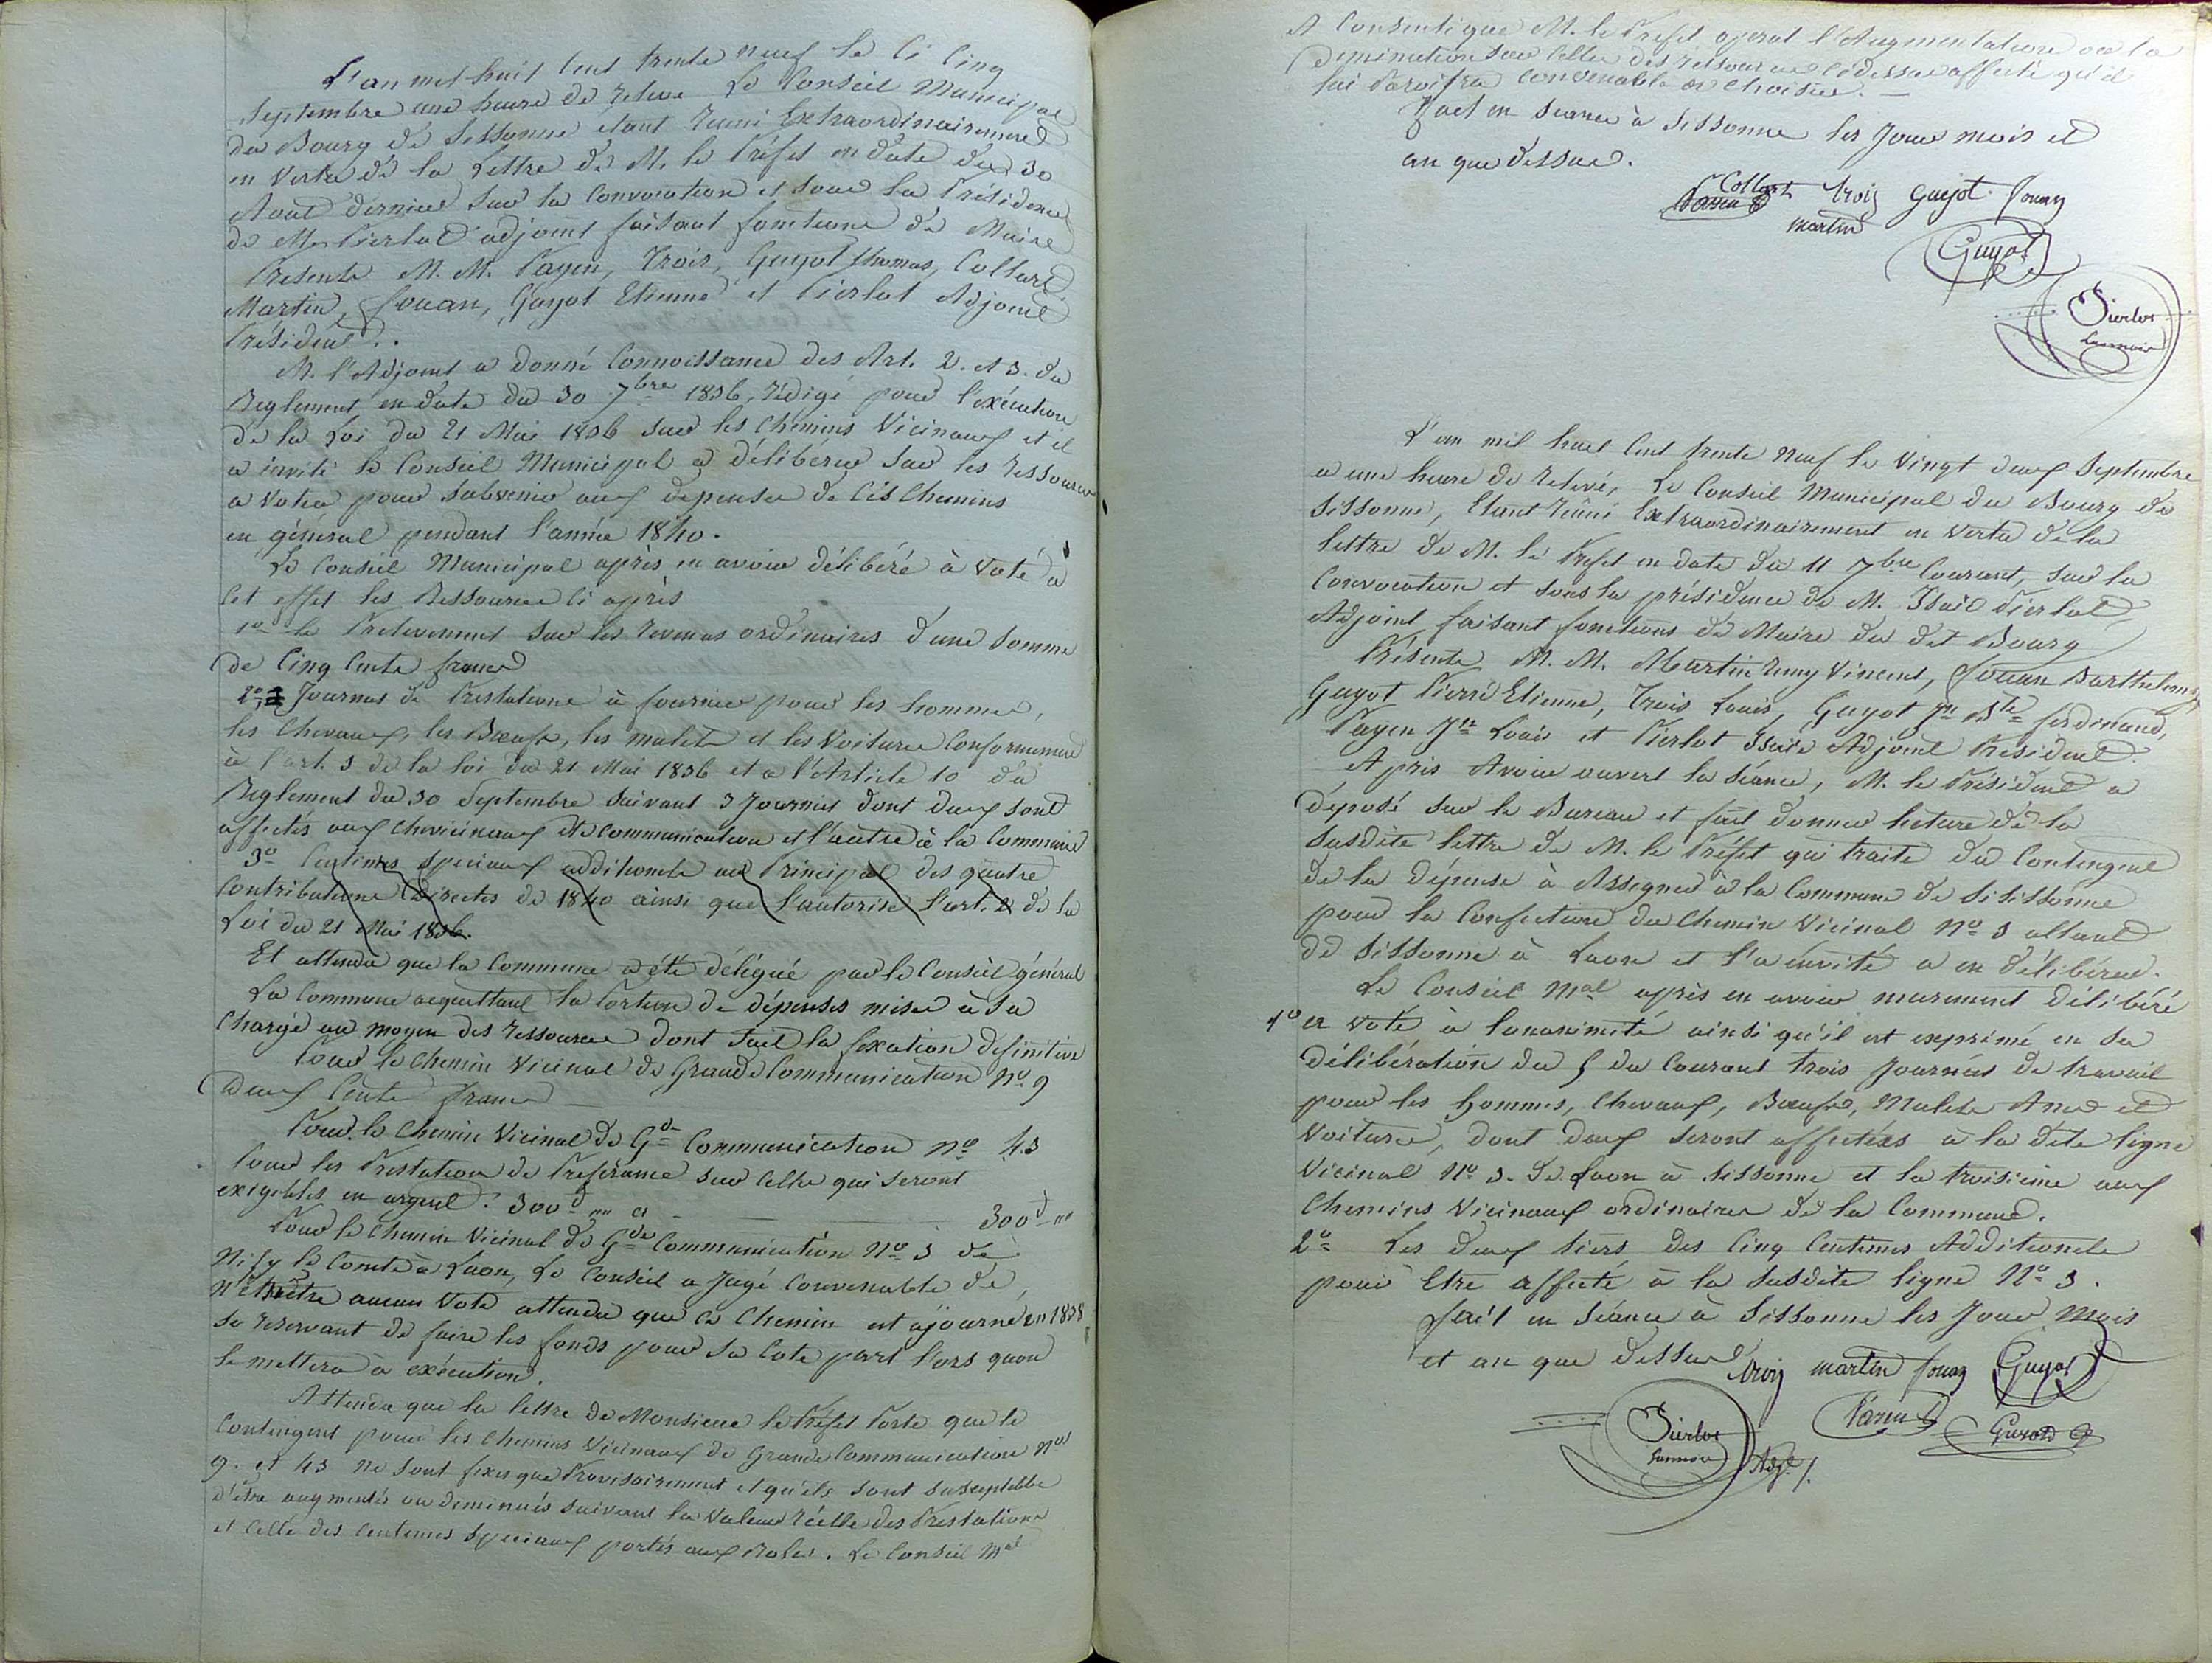 L'an mil huit Cent trente neuf le Ci Cinq
Septembre une heure de relevé Le Conseil Municipal
du Bourg de Sissonne étant réuni Extraordinairement
en vertu de la Lettre de M. le Préfet en date du 30
Aout dernier sur la Convocation et sous la Présidence
de M. Pierlot adjoint faisant fonctions de Maire
Présents M. M. Payen, Trois, Guyot Thomas, Collart
Martin, Jouan, Guyot Etienne et Pierlot Adjoint
Président.
M. l'Adjoint a donné Connoissance des Art. 2. et 3. du
Reglement en date du 30 7bre 1836, rédigé pour l'exécution
de la Loi du 21 Mai 1836 sur les Chemins Vicinaux et il
a invité le Conseil Municipal a délibérer sur les ressources
a voter pour subvenir aux dépenses de Cés Chemins
en général pendant l'année 1840.
Le Conseil Municipal après en avoir délibéré à voté à
Cet effet les Ressources Ci après
1o le Prelevement sur les revenus ordinaires d'une somme
de Cinq Cents francs
2o Journées de Prestations à fournir pour les hommes,
les Chevaux, les Bœufs, les mulets et les Voitures Conformement
à l'art. 3 de la loi du 21 Mai 1836 et a l'Article 10 du
Reglement du 30 Septembre suivant 3 Journées dont deux sont
affectés aux Ch. vicinaux de communication et l'autre à la Commune
3o Centimes Speciaux additionels au Principal des quatre
Contributions Directes de 1840 ainsi que l'autorise l'art. 2 de la
Loi du 21 Mai 1836.
Et attendu que la Commune a été déléguée par le Conseil général
La Commune acquittant la Portion de dépenses mises à sa
Charge au moyen des ressources dont suit la fixation definitive
Pour le Chemin Vicinal de Grande Communication No. 9
Deux Cents francs
Pour le Chemin Vicinal de Gde Communication No 43
Pour les Prestations de Préférance sur Celles qui seront
exigibles en argent. 300 300
Pour le Chemin Vicinal de Gde Communication No 3 de
Nisy le Comte à Laon, Le Conseil a Jugé Convenable de
N'émettre aucun Vote attendu que Ce Chemin est ajourné en 1838
se reservant de faire les fonds pour sa Cote part l'ors quon
le mettera à exécution.
Attendu que la lettre de Monsieur le Préfet Porte que le
Contingent pour les Chemins Vicinaux de Grande Communication Nos
9. et 43 ne sont fixés que Provisoirement et qu'ils sont susceptibles
d'être augmentés ou diminués suivant la Valeur réelle des Prestations
et Celle des Centimes Speciaux portés aux Roles. Le Conseil Mal
A Consenti que M. le Prefet operat l'Augmentation ou la
Diminution sur Celles des ressources Cidessus affecté qu'il
lui Paroitra Convenable de Choisir.
Fait en seance à Sissonne les Jour mois et
an que dessus.
Collart trois Guyot Jouan
Payen martin
Guyot
Pierlot
L'an mil huit Cent trente Neuf le Vingt deux Septembre
a une heure de relevé, Le Conseil Municipal du Bourg de
Sissonne, Etant réuni Extraordinairement en vertu de la
lettre de M. le Prefet en date du 11 7bre Courant, sur la
Convocation et sous la présidence de M. Isaïe Pierlot,
Adjoint faisant fonctions de Maire du dit Bourg
Présents M. M. Martin remy Vincent, Jouan Barthelemy,
Guyot Pierre Etienne, Trois Louis, Guyot Jn Bte ferdinand,
Payen Jn Louis et Pierlot Isaïe Adjoint Président.
Apris Avoir ouvert la séance, M. le Président a
déposé sur le Bureau et fait donner lecture de la
susdite lettre de M. le Préfet qui traite du Contingent
de la dépense à Assigner à la Commune de Sissonne
pour la Confection du Chemin Vicinal No 3 allant
de Sissonne à Laon et l'a invité a en délibérer.
Le Conseil Mal après en avoir murement délibéré
1o a voté à l'unanimité ainsi qu'il est exprimé en sa
délibération du 5 du Courant trois Journées de travail
pour les hommes, Chevaux, Bœufs, Mulets Anes et
Voitures, dont deux seront affectées à la dite ligne
Vicinal No 3. de Laon à Sissonne et la troisième aux
Chemins Vicinaux ordinaires de la Commune.
2o Les deux tiers des Cinq Centimes Additionels
pour Etre affecté à la susdite ligne No 3.
Fait en séance à Sissonne les Jour Mois
et an que dessus
trois martin Jouan Guyot
Pierlot Payen Guyot
Adjt